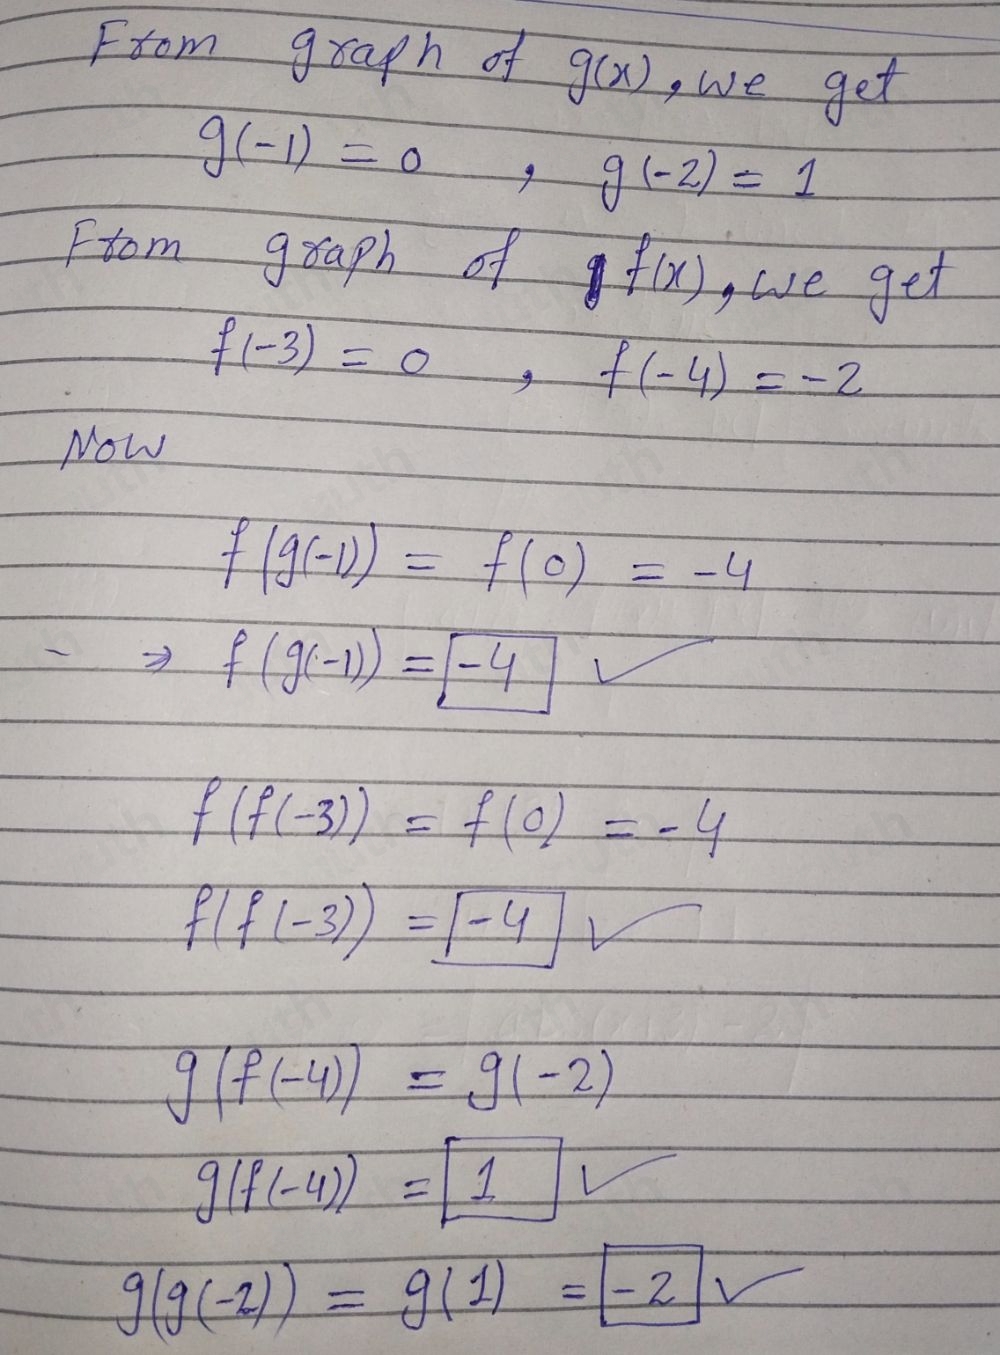 From graph of g(x), we get
g(-1) = 0 , g(-2) = 1
From graph of f(x), we get
f(-3) = 0 , f(-4) = -2
Now
f(g(-1)) = f(0) = -4
- ⇒ f(g(-1)) = -4 ✓
f(f(-3)) = f(0) = -4
f(f(-3)) = -4 ✓
g(f(-4)) = g(-2)
g(f(-4)) = 1 ✓
g(g(-2)) = g(1) = -2 ✓